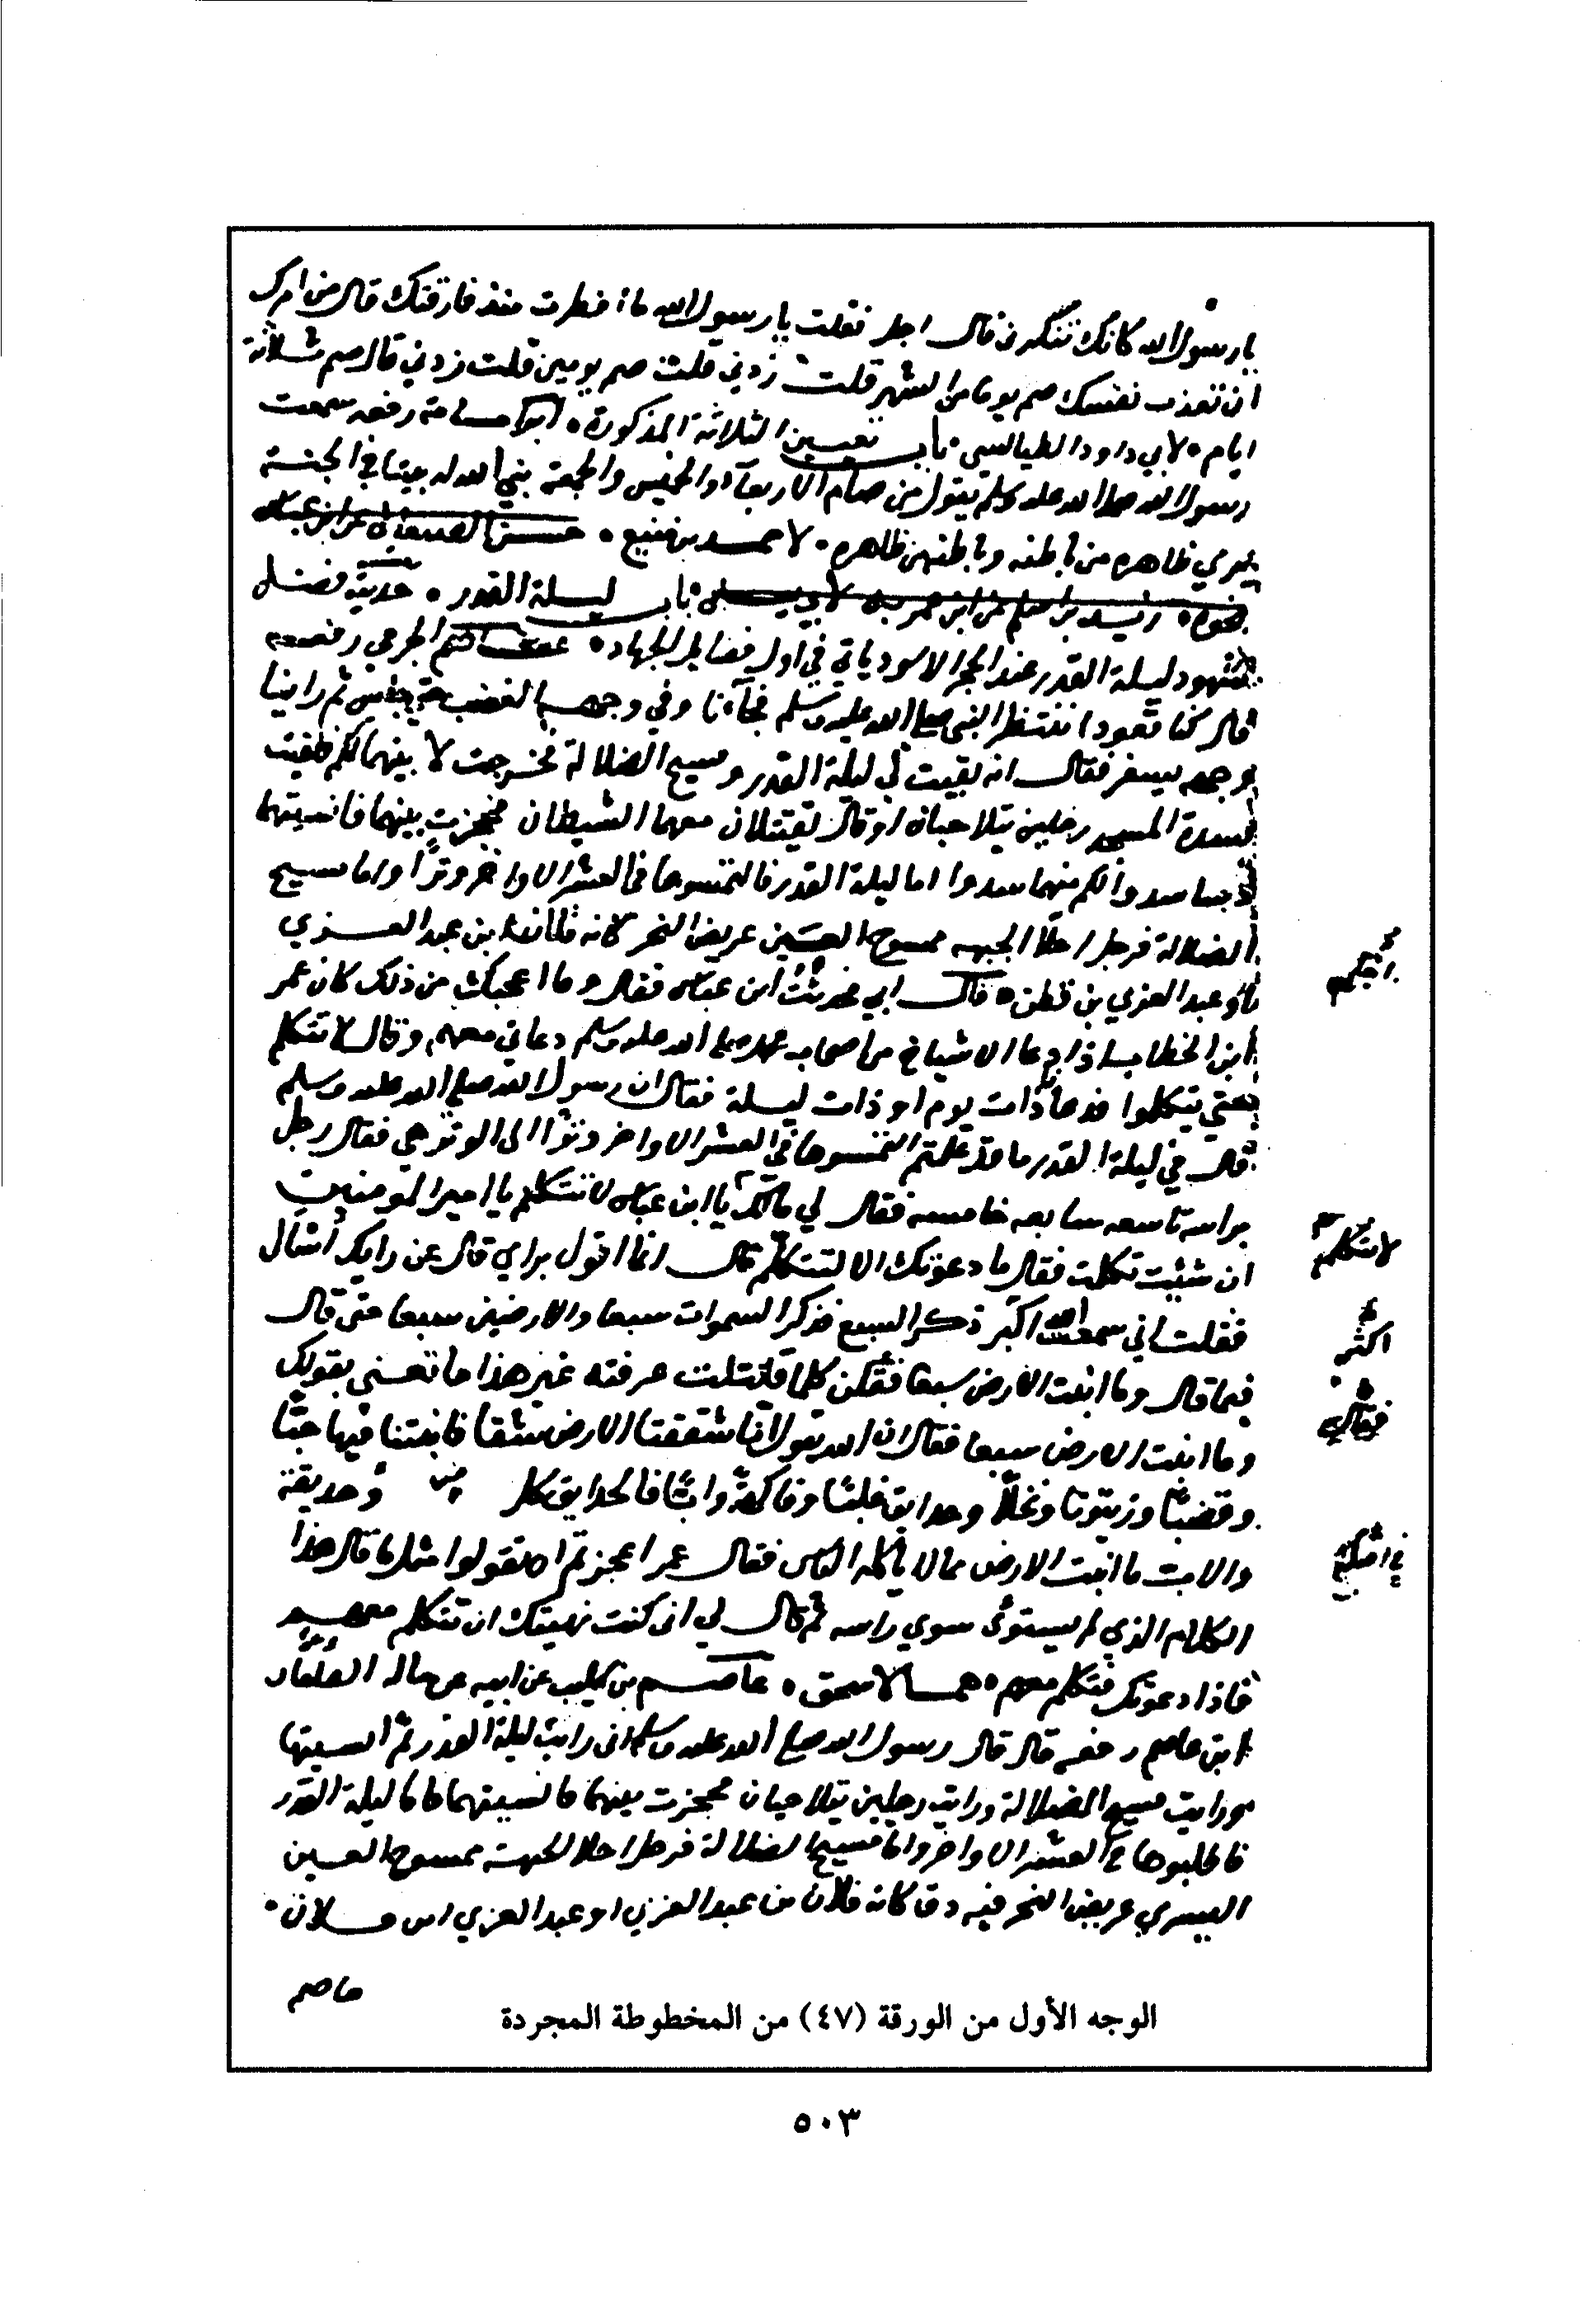 يا رسول الله كانك تنكرني قال اجل فقلت يا رسول الله ما افطرت منذ فارقتك قال من امرك
ان تعذب نفسك صم يوما من الشهر قلت زدني قلت صم يومين قلت زدني قال صم ثلاثة
ايام لابي داود الطيالسي باب تعيين الثلاثة المذكورة ابو امامة رفعه سمعت
رسول الله صلى الله عليه وسلم يقول من صام الاربعاء والخميس والجمعة بنى الله له بيتا في الجنة
يري ظاهره من باطنه وباطنه من ظاهره لاحمد بن منيع
بنحوه باب ليلة القدر حديث فضل
شهود ليلة القدر عند الحجر الاسود ياتي في اول فضايل الجهاد الجرمي رفعه
قال كنا قعودا ننتظر النبي صلى الله عليه وسلم فجآءنا وفي وجهه الغضب حتى جلس ثم راينا
وجهه يسفر فقال انه بينت لي ليلة القدر ومسيح الضلالة فخرجت لابينهما لكم فلقيت
بسدة المسجد رجلين يتلاحيان او قال يقتتلان معهما الشيطان فحجزت بينهما فانسيتهما
وسا شدوا لكم منهما شدوا اما ليلة القدر فالتمسوها في العشر الاواخر وترا واما مسيح
الضلالة فرجل اجلا الجبهه ممسوح العين عريض النحر كانه فلان بن عبد العزي
او عبد العزي بن قطن قال ابي فحدثت ابن عباس فقال وما اعجبك من ذلك كان عمر
ابن الخطاب اذا دعا الاشياخ من اصحاب محمد صلى الله عليه وسلم دعاني معهم وقال لا تتكلم
حتي يتكلموا فدعانا ذات يوم او ذات ليلة فقال ان رسول الله صلى الله عليه وسلم
قال في ليلة القدر ما قد علمتم التمسوها في العشر الاواخر وترا اى الوتر هي فقال رجل
برايه تاسعه سابعه خامسه فقال لي مالك يا ابن عباس لا تتكلم يا امير المومنين
ان شئت تكلمت فقال ما دعوتك الا لتتكلم قال انما اقول براي قال عن رايك اسال
فقلت اني سمعت الله اكبر ذكر السبع فذكر السموات سبعا والارضين سبعا حتى قال
فيما قال وما انبتت الارض سبعا كلما قلت عرفته غير هذا ما تعني بقولك
وما انبتت الارض سبعا فقال ان الله يقول انا شققنا الارض شقا فانبتنا فيها حبا
وقضبا وزيتونا ونخلا وحدايق غلبا وفاكهة وابا فالحدايق كل وحديقة
والاب ما انبتت الارض مما لا ياكله الناس فقال عمر اعجزتم ان تقولوا مثل ما قال هذا
الكلام الذي لم يستوي سوي راسه ثم قال لي اني كنت نهيتك ان تتكلم معهم
فاذا دعوتك فتكلم معهم لاسحق عاصم بن كليب عن ابيه عن خاله الفلتان
ابن عاصم رفعه قال قال رسول الله صلى الله عليه وسلم اني رايت ليلة القدر ثم انسيتها
ورايت مسيح الضلالة ورايت رجلين يتلاحيان فحجزت بينهما فانسيتهما فاما ليلة القدر
فاطلبوها في العشر الاواخر واما مسيح الضلالة فرجل اجلا الجبهة ممسوح العين
اليسري عريض النحر فيه دفا كانه فلان بن عبد العزي او عبد العزي ابن فلان
عاصم
لا تتكلم
اكثر
فقال
الوجه الأول من الورقة (٤٧) من المخطوطة المجردة
٥٠٣